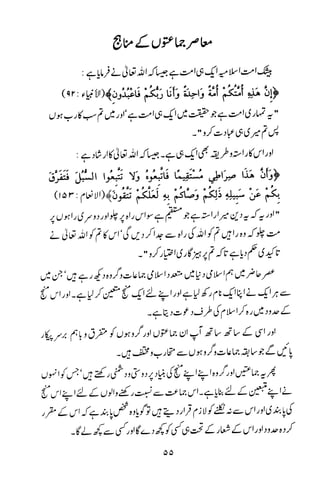 معاصر جماعتوں کے مناہج
بیشک امت اسلامیہ ایک ہی امت ہے جیسا کہ اللہ تعالیٰ نے فرمایا ہے :
﴿إِنَّ هَذِهِ أُمَّتُكُمْ أُمَّةً وَاحِدَةً وَأَنَا رَبُّكُمْ فَاعْبُدُونِ﴾(الأنبیاء : ۹۲)
"یہ تمہاری امت ہے جو حقیقت میں ایک ہی امت ہے' اور میں تم سب کا رب ہوں
پس تم میری ہی عبادت کرو"۔
اور اس کا راستہ و طریقہ بھی ایک ہی ہے۔ جیسا کہ اللہ تعالیٰ کا ارشاد ہے :
﴿وَأَنَّ هَذَا صِرَاطِي مُسْتَقِيمًا فَاتَّبِعُوهُ وَلَا تَتَّبِعُوا السُّبُلَ فَتَفَرَّقَ
بِكُمْ عَنْ سَبِيلِهِ ذَلِكُمْ وَصَّاكُمْ بِهِ لَعَلَّكُمْ تَتَّقُونَ﴾(الانعام : ۱۵۳)
"اور یہ کہ یہ دین میرا راستہ ہے جو مستقیم ہے سو اس راہ پر چلو اور دوسری راہوں پر
مت چلو کہ وہ راہیں تم کو اللہ کی راہ سے جدا کر دیں گی' اس کا تم کو اللہ تعالیٰ نے
تاکیدی حکم دیا ہے تاکہ تم پرہیزگاری اختیار کرو"۔
عصر حاضر میں ہم اسلامی دنیا میں متعدد اسلامی جماعات و گروہ دیکھ رہے ہیں' جن میں
سے ہر ایک نے اپنا ایک نام رکھ لیا ہے اور اپنے لئے ایک منہج متعین کر لیا ہے۔ اور اس منہج
کے حدود میں رہ کر اسلام کی طرف دعوت دیتا ہے۔
اور اسی کے ساتھ ساتھ آپ ان جماعتوں اور گروہوں کو متفرق و باہم برسرپیکار
پائیں گے جو سابقہ جماعات و گروہوں سے متحارب و مختلف ہیں۔
پھر یہ جماعتیں اور گروہ اپنے اپنے منہج کی بنیاد پر دوستی و دشمنی رکھتے ہیں' جس کو انہوں
نے اپنے متبعین کے لئے بنایا ہے۔ اس جماعت سے نسبت رکھنے والوں کے لئے اپنے اس منہج
کی پابندی اور اس سے نہ نکلنے کو لازم قرار دیتے ہیں' تو گویا وہ شخص پابند ہے کہ اس کے مقرر
کردہ حدود اور اس کے شعار کے تحت ہی کسی کو کچھ دے گا اور کسی سے کچھ لے گا۔
۵۵